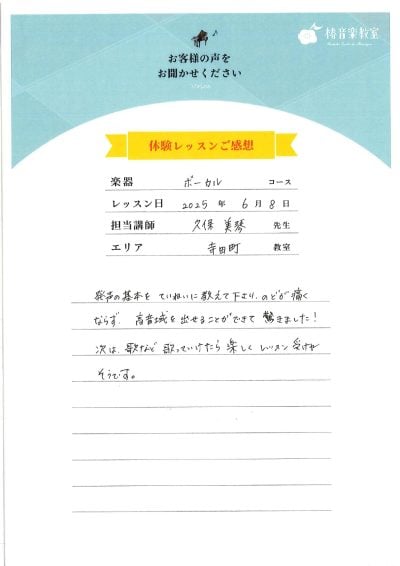 椿音楽教室
お客様の声を
お聞かせください
体験レッスンご感想
楽器 ボーカル コース
レッスン日 2025年 6月8日
担当講師 久保 美琴 先生
エリア 寺田町 教室
発声の基本を ていねいに教えて下さり、のどが痛く
ならず、高音域を出せることができて 驚きました!
次は、歌など 歌っていけたら 楽しく レッスン 受けれ
そうです。